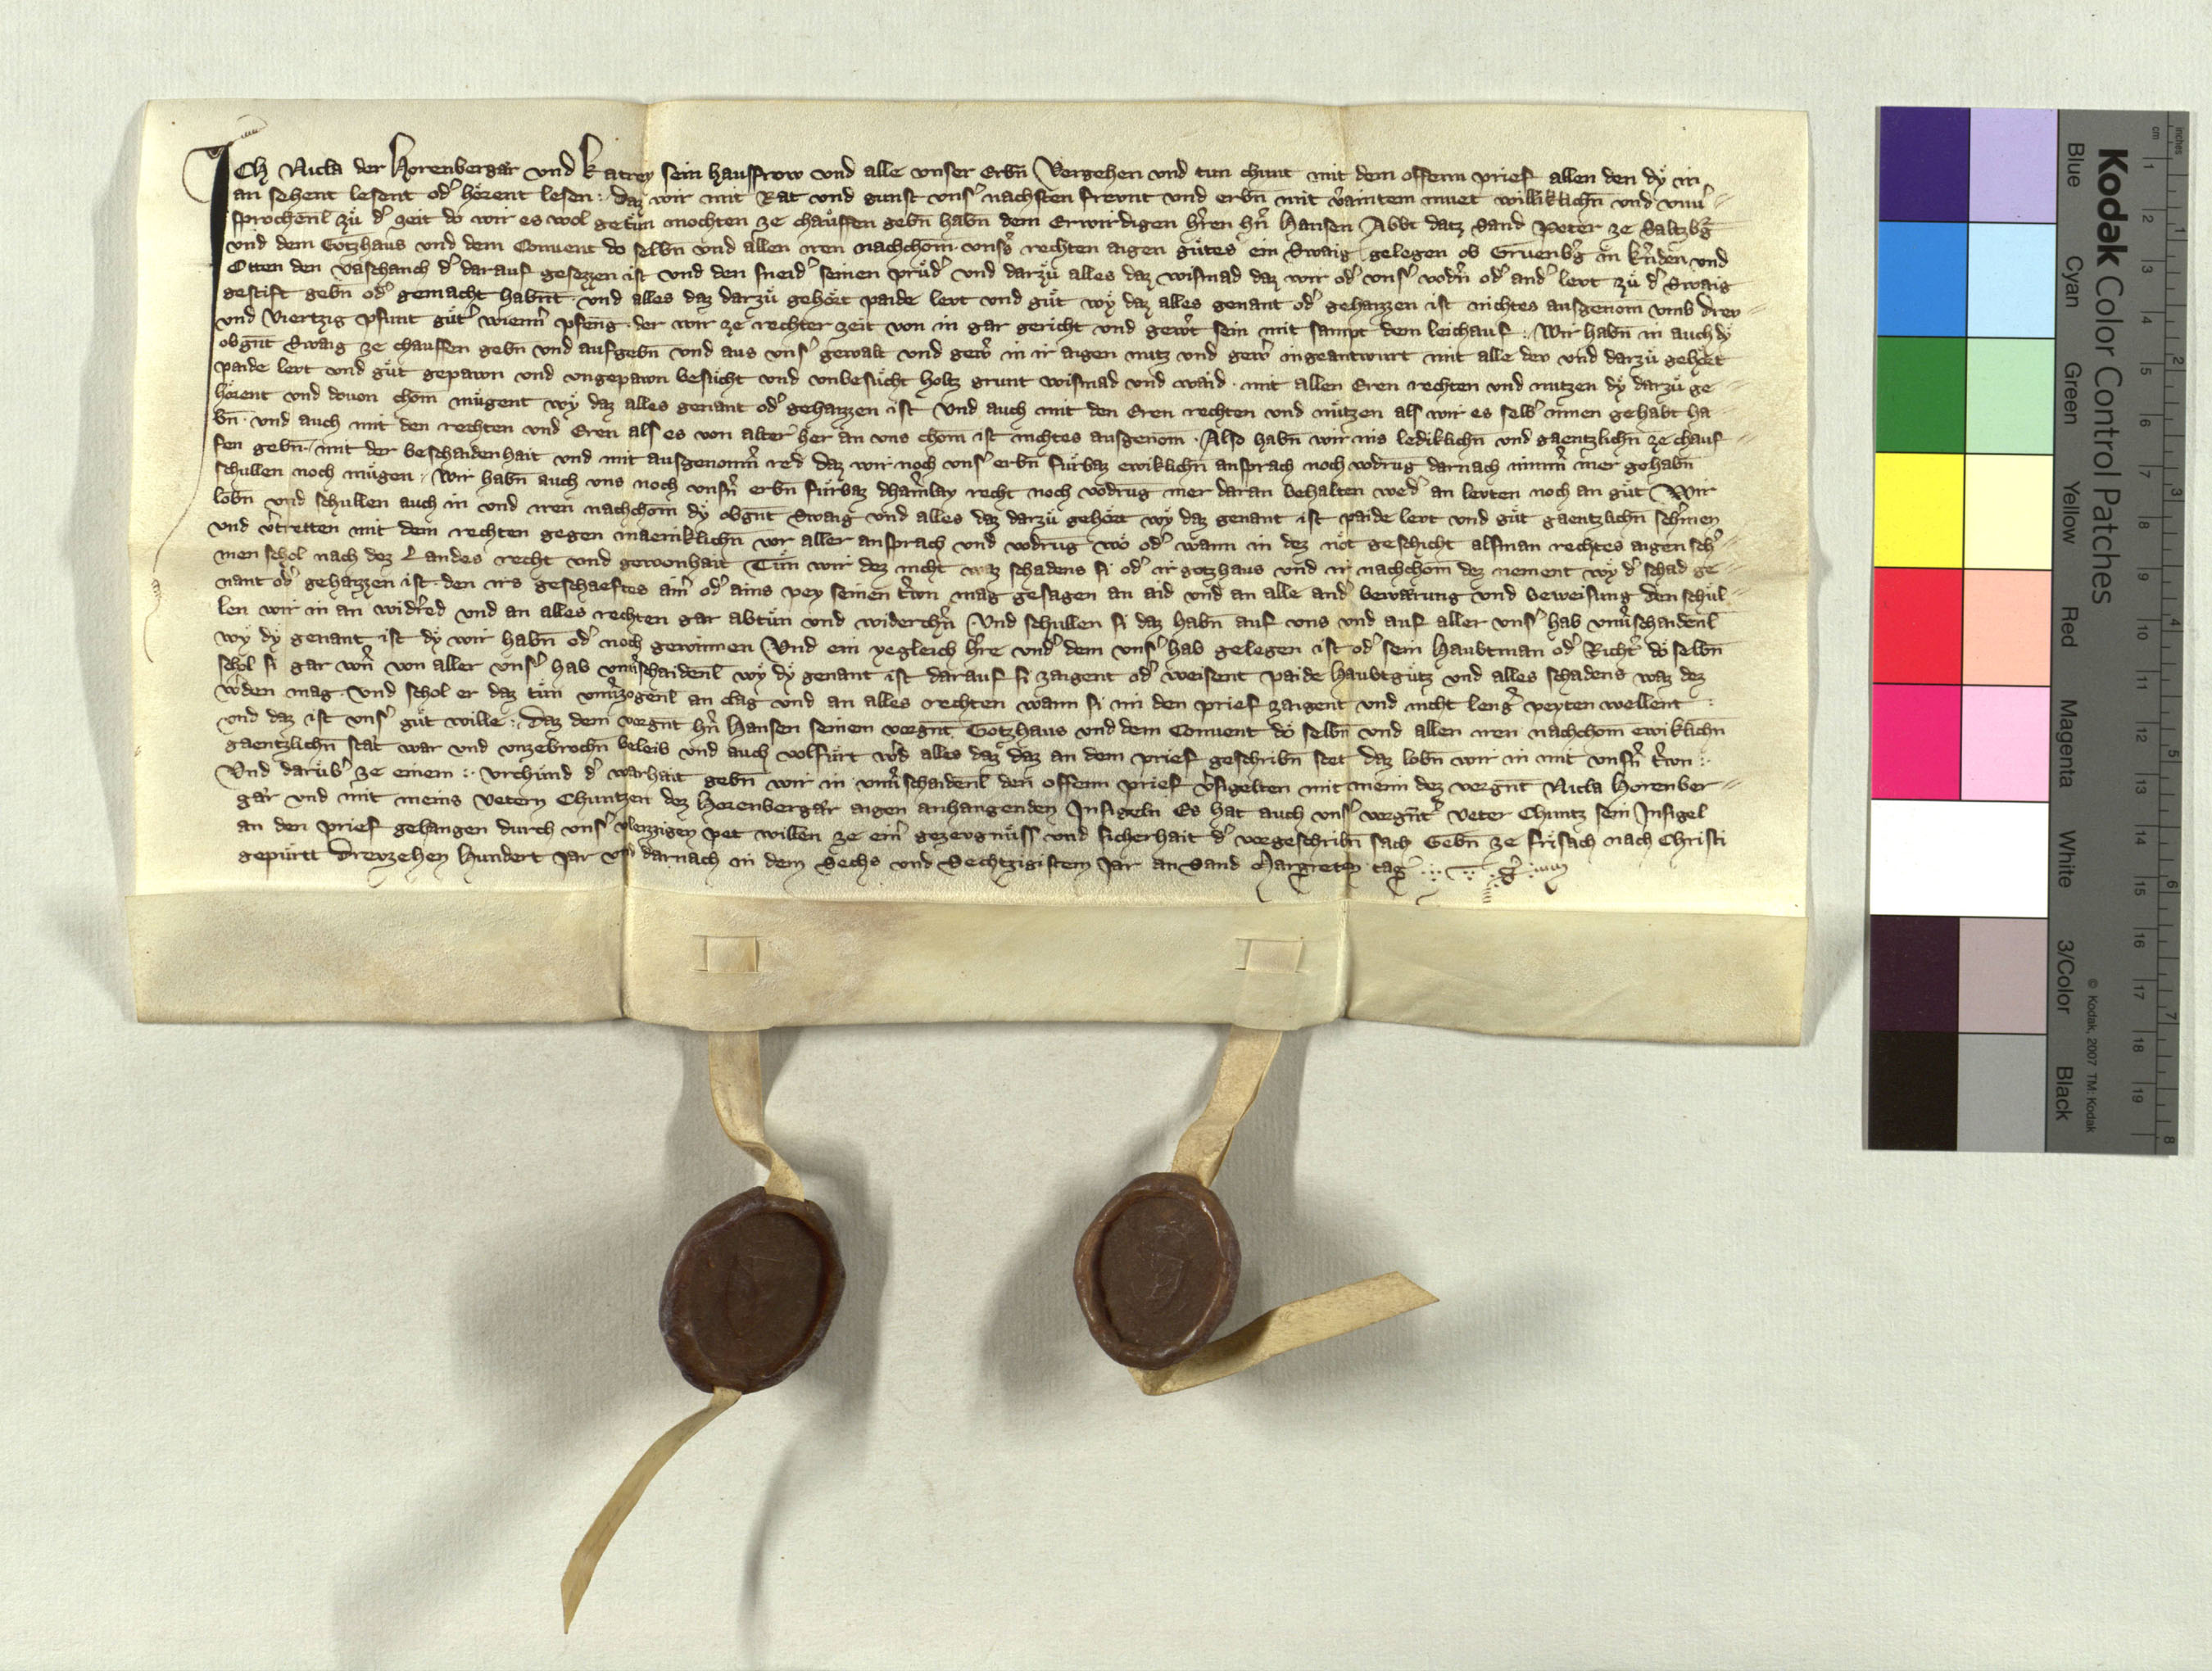 ICh Nicla der Horenbergär vnd Katrey sein hausfrow vnd alle vnser Erbn̄ Vergehen vnd tun chunt mit dem offenn prief allen den dy̋ in
an sehent lesent od᾽ hőrent lesen : Daz wir mit Rat vnd gunst vns᾽ nachsten frevnt vnd erbn̄ mit v᾽aintem muet williklichn̄ vnd vnu᾽
sprochēnl zů d᾽ zeit do wir es wol getůn mochten ze chauffen gebn̄ habn̄ dem Erwirdigen h᾽ren h᾽n Hansen Abbt datz Sand Peter ze Saltzb᾽g
vnd dem Gotzhaus vnd dem Conuent do selbn̄ vnd allen iren nachchom̄ . vnsṣ᾽ rechten aigen gůtes ein Swaig gelegen ob Gruenb᾽g in k᾽nden vnd
Otten den Vaschanch d᾽ darauf gesezzen ist vnd den sneid᾽ seinen průd᾽ vnd darzů alles daz wismad daz wir od᾽ vns᾽ vodn᾽ od᾽ and᾽ levt zů d᾽ Swaig
gestift gebn̄ od᾽ gemacht habn̄t . vnd alles daz darzů gehőrt paide levt vnd gůt wy̋ daz alles genant od᾽ gehaizzen ist nichtes ausgenom̄ vmb drev
vnd Viertzig pfunt gůt᾽ wienn᾽ pfen̄g . der wir ze rechter zeit von in gar gericht vnd gew᾽t sein mit sampt dem leichauf : Wir habn̄ in auch dy̋
obgn̄t Swaig ze chauffen gebn̄ vnd aufgebn̄ vnd aus vns᾽ gewalt vnd gew᾽ in ir aigen nutz vnd gew᾽ ingeantwurt mit alle dev vnd darzů gehőrt
paide levt vnd gůt gepawn vnd vngepawn besůcht vnd vnbesůcht holtz grunt wismad vnd waid . mit allen Eren rechten vnd nutzen dy̋ darzů ge
hőrent vnd douon chom̄ můgent wy̋ daz alles genant od᾽ gehaizzen ist Vnd auch mit den Eren rechten vnd nůtzen als wir es selb᾽ innen gehabt ha
bn̄ . vnd auch mit den rechten vnd Eren als es von alter her an vns chom̄ ist nichtes ausgenom̄ . Also habn̄ wir ins lediklichn̄ vnd gaentzlichn̄ ze chauf
fen gebn̄ . mit der beschaidenhait vnd mit ausgenom̄n᾽ red daz wir noch vns᾽ erbn̄ fůrbaz ewiklichn̄ ansprach noch vodrūg darnach nimm᾽ mer gehabn̄
schullen noch můgen : Wir habn̄ auch vns noch vnsn᾽ erbn̄ fůrbaz dhain᾽lay recht noch vodrūg mer daran behalten wed᾽ an levten noch an gůt Wir
lobn̄ vnd schullen auch in vnd iren nachchom̄ dy̋ obgn̄t Swaig vnd alles daz darzů gehőrt wy̋ daz genant ist paide levt vnd gůt gaentzlichn̄ sch᾽men
vnd v᾽tretten mit dem rechten gegen maeniklichn̄ vor aller ansprach vnd vodrūg wő od᾽ wann in dez nőt geschicht alsman rechtes aigen sch᾽
men schol nach dez Landes recht vnd gewonhait Tůn wir dez nicht waz schadens si od᾽ ir gotzhaus vnd ir nachchom̄ dez nement wy̋ d᾽ schad ge
nant od᾽ gehaizzen ist . den irs geschaeftes ain᾽ od᾽ ains pey seinen t᾽wn mag gesagen an aid vnd an alle and᾽ bewärung vnd beweisung den schul
len wir in an wid᾽red vnd an alles rechten gar abtůn vnd widerch᾽n Vnd schullen si daz habn̄ auf vns vnd auf aller vns᾽ hab vnu᾽schaidēnl
wy̋ dy̋ genant ist dy̋ wir habn̄ od᾽ noch gewinnen Vnd ein yegleich h᾽re vnd᾽ dem vns᾽ hab gelegen ist od᾽ sein Haubtman od᾽ Richt᾽ dő selbn̄
schol si gar w᾽n von aller vns᾽ hab vnu᾽schaidēnl wy̋ dy̋ genant ist darauf si zaigent od᾽ weisent paide haubtgůtz vnd alles schadens waz dez
w᾽den mag . vnd schol er daz tůn vnu᾽zogēnl an chlag vnd an alles rechten wann si im den prief zaigent vnd nicht leng᾽ peyten wellent :
vnd daz ist vns᾽ gůt wille : Daz dem vorgn̄t h᾽n Hansen seinem vorgn̄t Gotzhaus vnd dem Conuent dő selbn̄ vnd allen iren nachchom̄ ewiklichn̄
gaentzlichn̄ stät war vnd vnzebrochn̄ beleib vnd auch volfůrt w᾽d alles daz daz an dem prief geschribn̄ stet daz lobn̄ wir in mit vnsn᾽ t᾽wn :
Vnd darůb᾽ ze einem : vrchůnd d᾽ warhait gebn̄ wir in vnu᾽schaidēnl den offenn prief v᾽sigelten mit meim dez vorgn̄t Nicla Horenber
gär vnd mit meins Vetern Chuntzen dez Horenbergär aigen anhangenden Insigeln Es hat auch vns᾽ vorgn̄t᾽ Veter Chuntz sein Insigel
an den prief gehangen durch vns᾽ vleizzigen pet willen ze ein᾽ gezevgnůss vnd sicherhait d᾽ vorgeschribn̄ sach Gebn̄ ze Frisach nach Christi
gepůrtt Drevzehen Hundert Jar vn̄ darnach in dem Sechs vnd Sechtzigistem Jar an Sand Margreten tag
Kodak Color Control Patches
Blue Cyan Green Yellow Red Magenta White 3/Color Black
© Kodak, 2007 TM: Kodak
inches 1 2 3 4 5 6 7 8
cm 1 2 3 4 5 6 7 8 9 10 11 12 13 14 15 16 17 18 19